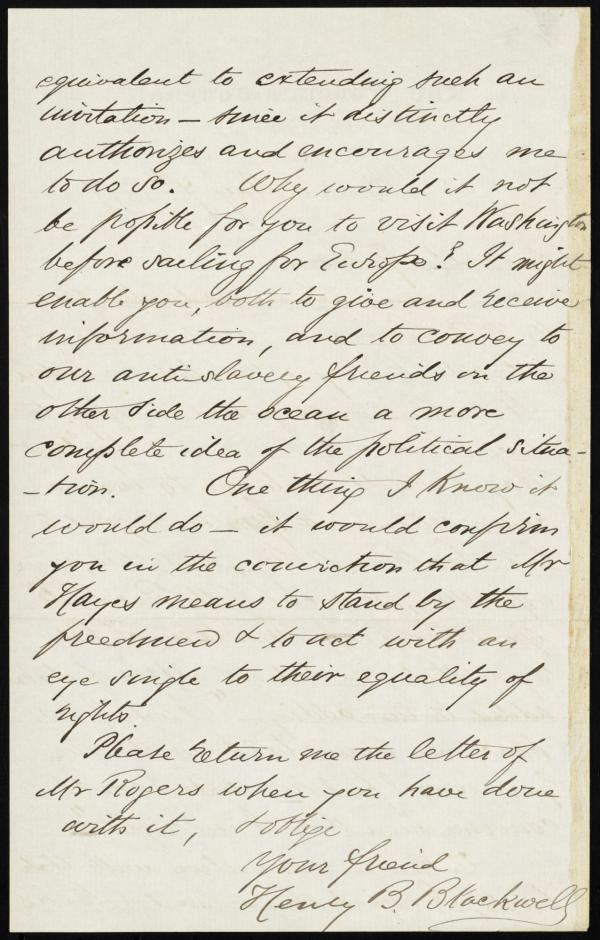 equivalent to extending such an
invitation – since it distinctly
authorizes and encourages me
to do so. Why would it not
be possible for you to visit Washington
before sailing for Europe? It might
enable you, both to give and receive
information, and to convey to
our anti-slavery friends on the
other side the ocean a more
complete idea of the political situa-
-tion. One thing I know it
would do – it would confirm
you in the conviction that Mr
Hayes means to stand by the
freedmen & to act with an
eye single to their equality of
rights.
Please return me the letter of
Mr Rogers when you have done
with it, & oblige
Your friend
Henry B. Blackwell